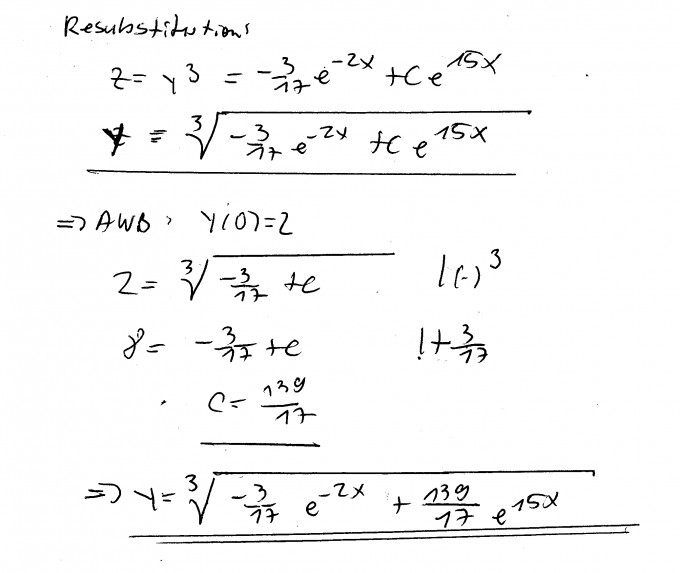 Resubstitution:
z = y³ = -3/17 e^(-2x) + C e^(15x)
y = ∛(-3/17 e^(-2x) + C e^(15x))
=> AWB: y(0)=2
2 = ∛(-3/17 + C) |(-)³
8 = -3/17 + C |+3/17
C = 139/17
=> y = ∛(-3/17 e^(-2x) + 139/17 e^(15x))